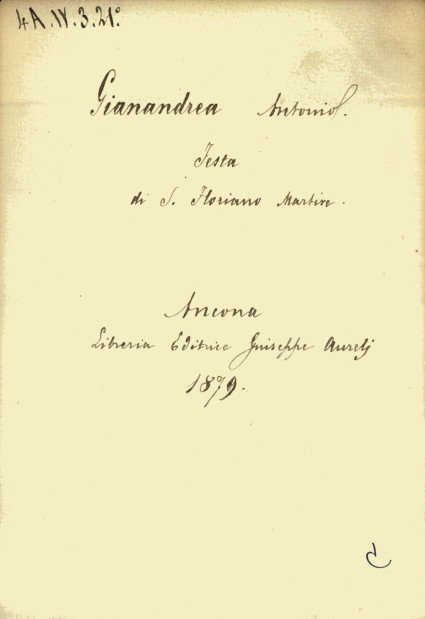 4A.IV.3.21°
Gianandrea Antonio.
Festa
di S. Floriano Martire.
Ancona
Libreria Editrice Guiseppe Aurelj
1879.